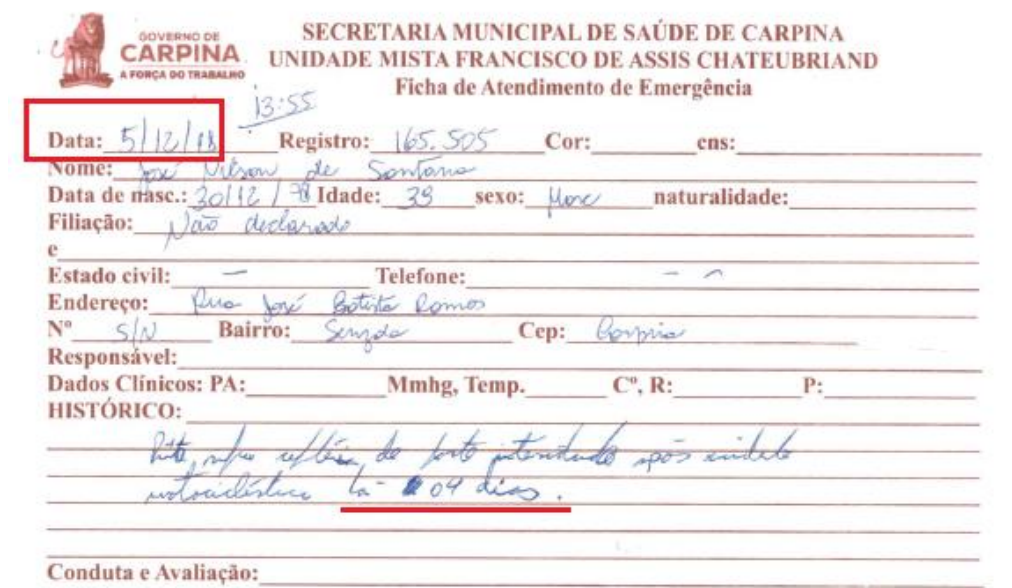 GOVERNO DE
CARPINA
A FORÇA DO TRABALHO
SECRETARIA MUNICIPAL DE SAÚDE DE CARPINA
UNIDADE MISTA FRANCISCO DE ASSIS CHATEUBRIAND
Ficha de Atendimento de Emergência
13:55
Data: 5/12/18 Registro: 165.505 Cor: cns:
Nome: José Nilson de Santana
Data de nasc.: 30/12/78 Idade: 39 sexo: Masc naturalidade:
Filiação: Não declarado
e
Estado civil: - Telefone: - -
Endereço: Rua José Batista Ramos
Nº S/N Bairro: Senzala Cep: Carpina
Responsável:
Dados Clínicos: PA: Mmhg, Temp. Cº, R: P:
HISTÓRICO:
de forte intensidade após
motociclístico há 04 dias.
Conduta e Avaliação: